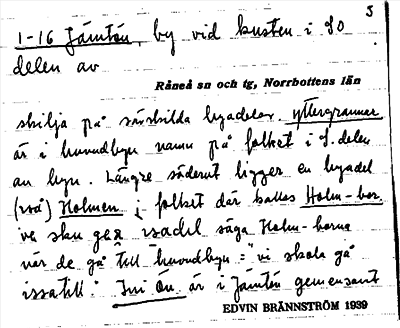 3
1-16 Jämtön, by vid kusten i SO
delen av
Råneå sn och tg, Norrbottens län
skilja på särskilda byadelar. yttergrannar
är i huvudbyn namn på folket i S. delen
av byn. Längre söderut ligger en byadel
(två) Holmen; folket där kallas Holm-bor.
ve sku gea isadel säga Holm-borna
när de gå till huvudbyn = "vi skola gå
issatill". Ini ön är i Jämtön gemensamt
EDVIN BRÄNNSTRÖM 1939